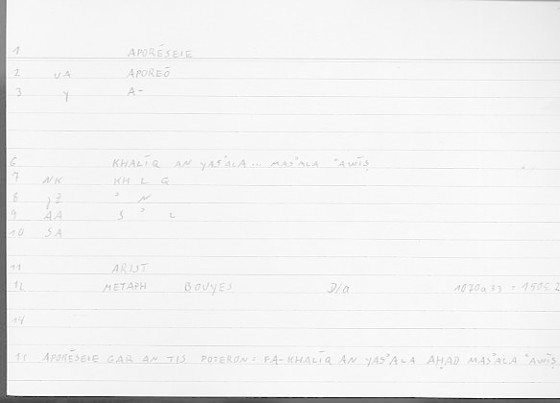 1 APORĒSEIE
2 VA APOREŌ
3 y A-
6 KHALĪQ AN YASʾALA .. MASʾALA ʿAWĪṢ
7 NK KH L Q
8 ʾ N
9 AA S ʾ L
10 SA
11 ARIST
12 METAPH BOUYGES D/a 1020a33 = 1505.2
14
15 APORĒSEIE GAR AN TIS POTERON: FA-KHALĪQ AN YASʾALA AḤAD MASʾALA ʿAWĪṢ